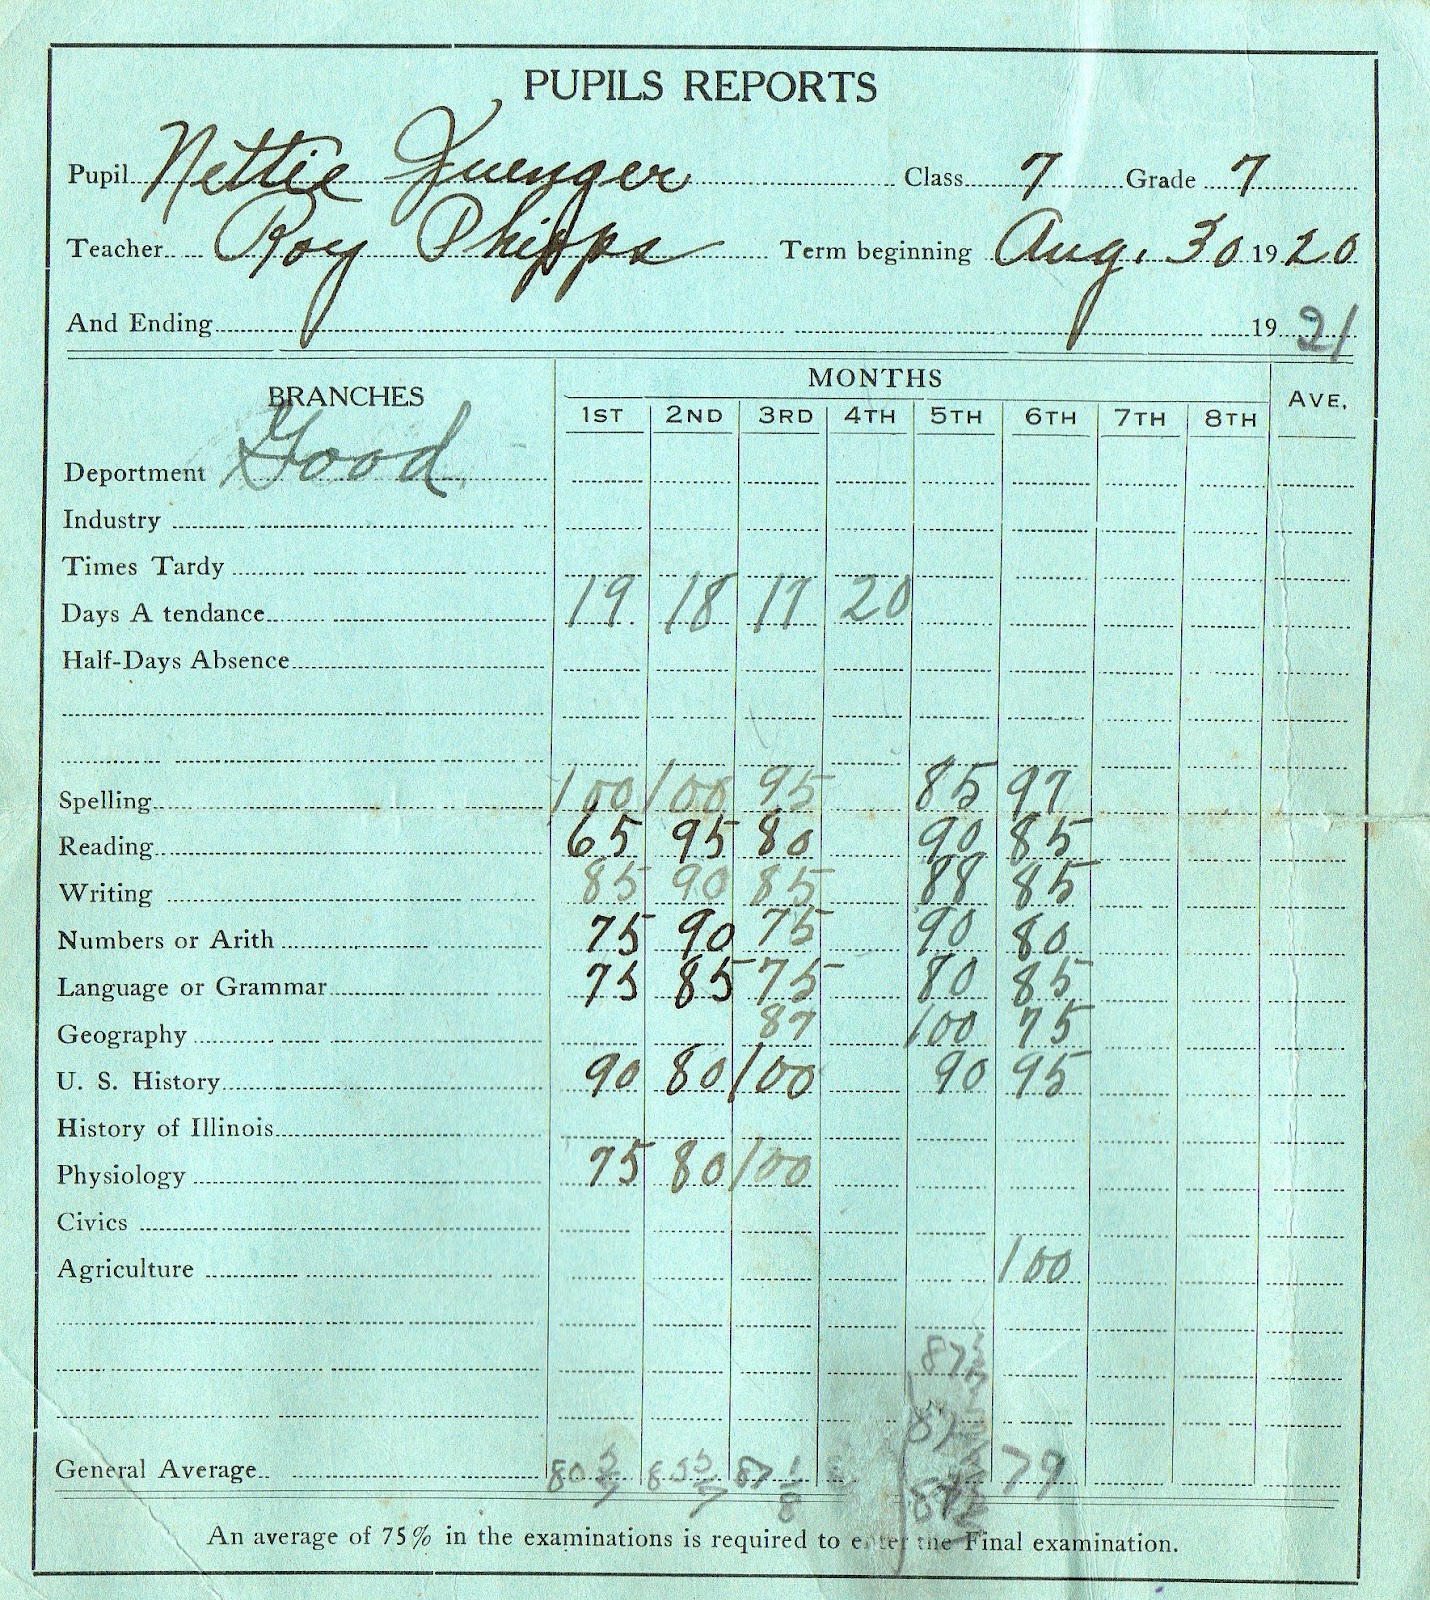 PUPILS REPORTS
Pupil Nettie Zuenger Class 7 Grade 7
Teacher Roy Phipps Term beginning Aug. 30 1920
And Ending 1921
BRANCHES MONTHS AVE.
1ST 2ND 3RD 4TH 5TH 6TH 7TH 8TH
Deportment Good
Industry
Times Tardy
Days A tendance 19 18 17 20
Half-Days Absence
Spelling 100 100 95 85 97
Reading 65 95 80 90 85
Writing 85 90 85 88 85
Numbers or Arith 75 90 75 90 80
Language or Grammar 75 85 75 80 85
Geography 87 100 75
U. S. History 90 80 100 90 95
History of Illinois
Physiology 75 80 100
Civics
Agriculture 100
87
87
General Average 80 5/7 85 5/7 87 1/8 79
An average of 75% in the examinations is required to enter the Final examination.